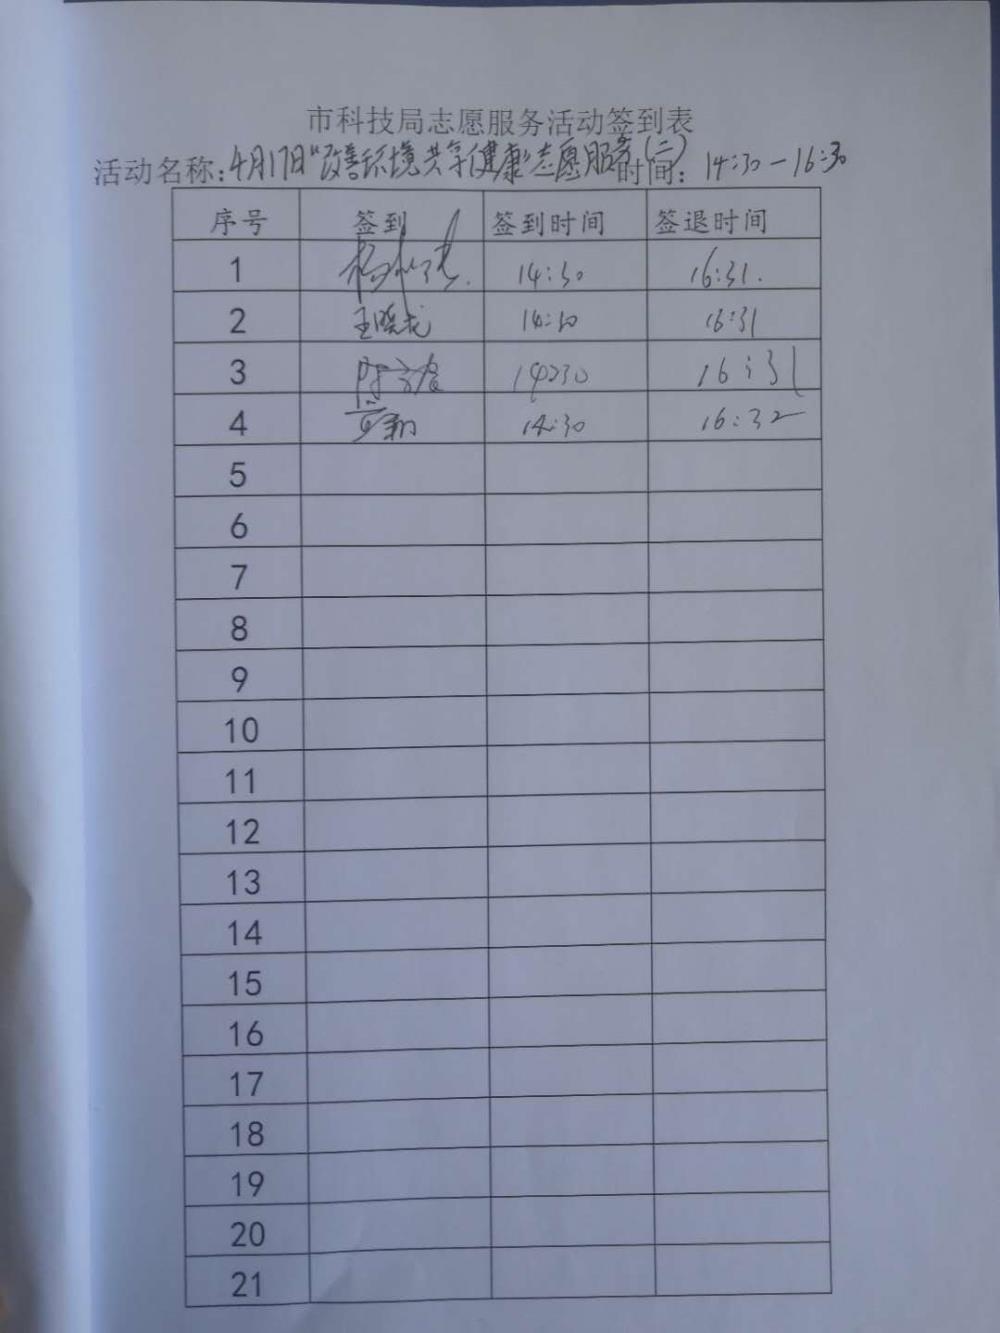 市科技局志愿服务活动签到表
活动名称:4月17日"改善环境共享健康"志愿服务(二)时间: 14:30-16:30
序号 签到 签到时间 签退时间
1 14:30 16:31.
2 王晓龙 14:30 16:31
3 14:30 16:31
4 14:30 16:32
5
6
7
8
9
10
11
12
13
14
15
16
17
18
19
20
21